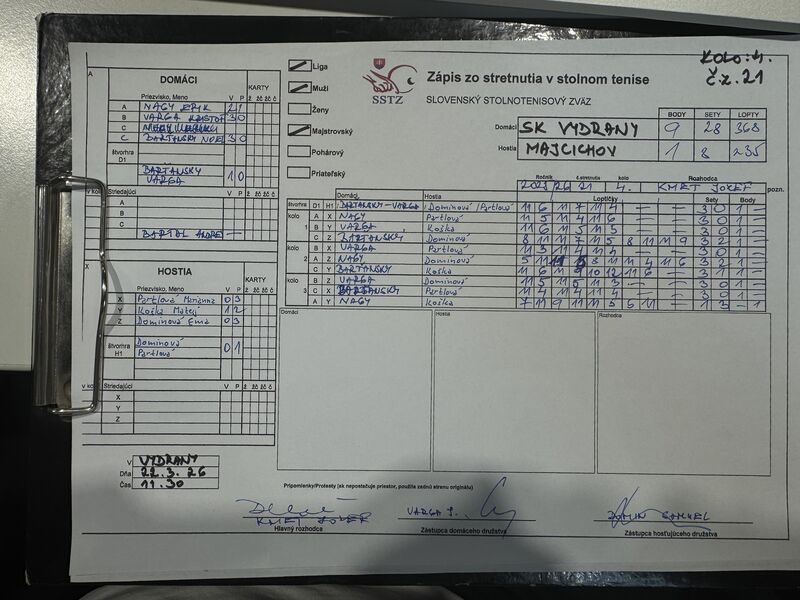 KOLO: 4.
Č.Z. 21
A
DOMÁCI
Priezvisko, Meno V P KARTY ž žč žč č
A NAGY ERIK 2 1
B VARGA KRISTOF 3 0
C
C BARTANSKY NOEL 3 0
štvorhra D1 BARTANSKY VARGA 1 0
v kolo Striedajúci
A
B
C
BARTAL ANDREJ
X
HOSTIA
Priezvisko, Meno V P KARTY ž žč žč č
X Partlová Marianna 0 3
Y Koška Matej 1 2
Z Domínová Ema 0 3
štvorhra H1 Domínová Partlová 0 1
v kolo Striedajúci
X
Y
Z
V VYDRANY
Dňa 22.3.26
Čas 11.30
Liga
Muži
Ženy
Majstrovský
Pohárový
Priateľský
SSTZ
Zápis zo stretnutia v stolnom tenise
SLOVENSKÝ STOLNOTENISOVÝ ZVÄZ
BODY SETY LOPTY
Domáci SK VYDRANY 9 28 368
Hostia MAJCICHOV 1 8 235
Ročník č.stretnutia kolo Rozhodca
2025/26 21 4. KMET JOZEF pozn.
Domáci Hostia Loptičky Sety Body
štvorhra D1 H1 BARTANSKY-VARGA Domínová/Partlová 11 6 11 7 11 4 — — 3 0 1 —
kolo 1 A X NAGY Partlová 11 5 11 4 11 6 — — 3 0 1 —
B Y VARGA Koška 11 6 11 5 11 5 — — 3 0 1 —
C Z BARTANSKÝ Domínová 8 11 11 7 11 5 8 11 11 9 3 2 1 —
kolo 2 B X VARGA Partlová 11 3 11 4 11 4 — — 3 0 1 —
A Z NAGY Domínová 5 11 11 8 11 11 4 11 6 3 2 1 —
C Y BARTANSKÝ Koška 11 6 11 9 10 12 11 6 — 3 1 1 —
kolo 3 B Z VARGA Domínová 11 5 11 5 11 3 — — 3 0 1 —
C X BARTANSKÝ Partlová 11 4 11 4 11 4 — — 3 0 1 —
A Y NAGY Koška 7 11 9 11 11 5 6 11 — 1 3 — 1
Domáci Hostia Rozhodca
Pripomienky/Protesty (ak nepostačuje priestor, použite zadnú stranu originálu)
KMET JOZEF VARGA Š. DOMIN SAMUEL
Hlavný rozhodca Zástupca domáceho družstva Zástupca hosťujúceho družstva